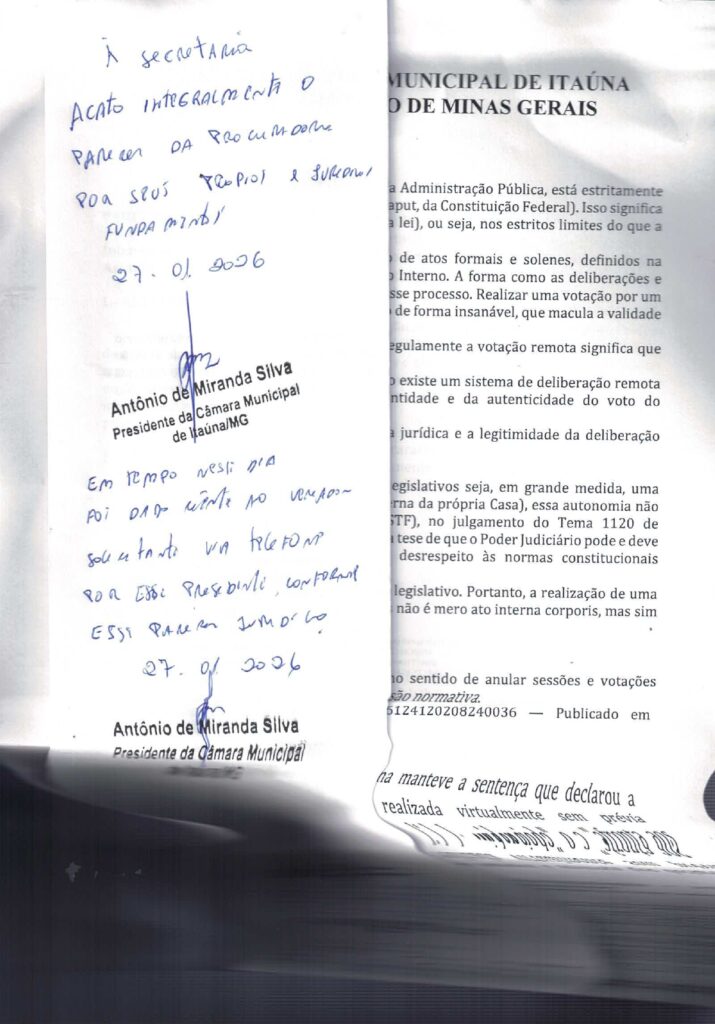 À Secretaria
Acato integralmente o
parecer da procuradoria
por seus própios e jurídicos
fundamentos
27.01.2026
Antônio de Miranda Silva
Presidente da Câmara Municipal
de Itaúna/MG
Em tempo nesti dia
foi dado ciente ao vereador
solicitante via telefone
por essi presidenti, conforme
essi parecer jurídico
27.01.2026
Antônio de Miranda Silva
Presidente da Câmara Municipal
MUNICIPAL DE ITAÚNA
O DE MINAS GERAIS
a Administração Pública, está estritamente
aput, da Constituição Federal). Isso significa
a lei), ou seja, nos estritos limites do que a
de atos formais e solenes, definidos na
o Interno. A forma como as deliberações e
sse processo. Realizar uma votação por um
de forma insanável, que macula a validade
egulamente a votação remota significa que
o existe um sistema de deliberação remota
ntidade e da autenticidade do voto do
a jurídica e a legitimidade da deliberação
egislativos seja, em grande medida, uma
erna da própria Casa), essa autonomia não
STF), no julgamento do Tema 1120 de
a tese de que o Poder Judiciário pode e deve
desrespeito às normas constitucionais
legislativo. Portanto, a realização de uma
não é mero ato interna corporis, mas sim
no sentido de anular sessões e votações
são normativa.
5124120208240036 — Publicado em
na manteve a sentença que declarou a
realizada virtualmente sem prévia